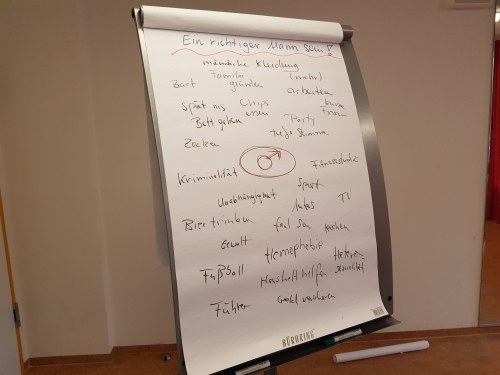 Ein richtiger Mann sein!
männliche Kleidung
Bart Familie gründen (mehr) arbeiten
Spät ins Bett gehen Chips essen Party
Zocken tiefe Stimme
Kriminalität Fitnessstudio
Unabhängigkeit Sport
Bier trinken faul sein Autos TV
Gewalt Homophobie kochen
Fußball Haushalt helfen Heterosexualität
Führer Geld verdienen
NEULAND